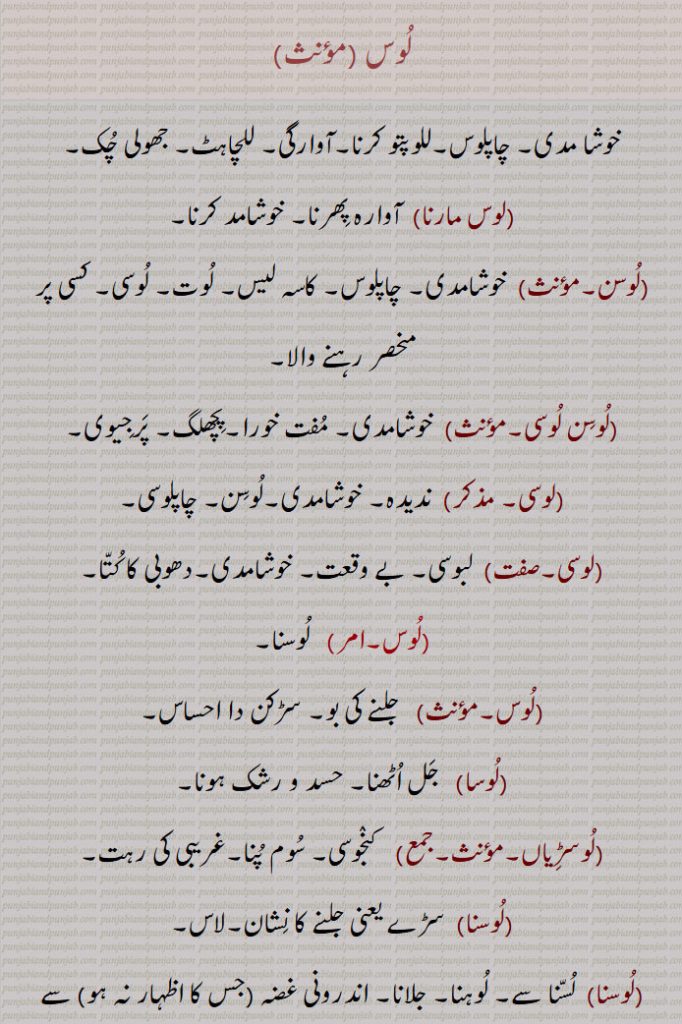 لُوس (مؤنث)
خوشا مدی۔ چاپلوس۔للو پتو کرنا۔آوارگی۔ للچاہٹ۔ جھولی چُک۔
(لوس مارنا) آوارہ پِھرنا۔ خوشامد کرنا۔
(لُوسن۔مؤنث) خوشامدی۔ چاپلوس۔ کاسہ لیس۔ لُوت۔ لُوسی۔ کسی پر
منحصر رہنے والا۔
(لُوسِن لُوسی۔مؤنث) خوشامدی۔ مُفت خورا۔پِچھلگ۔ پَرجیوی۔
(لوسی۔ مذکر) ندیدہ۔ خوشامدی۔لُوسِن۔ چاپلوسی۔
(لوسی۔صفت) لبوسی۔ بے وقعت۔ خوشامدی۔دھوبی کا کُتّا۔
(لُوس۔امر) لُوسنا۔
(لُوس۔مؤنث) جلنے کی بو۔ سڑکن دا احساس۔
(لُوسا) جَل اُٹھنا۔ حسد و رشک ہونا۔
(لُوسڑِیاں۔مؤنث۔جمع) کنجُوسی۔ سُوم پُنا۔غریبی کی رہت۔
(لُوسنا) سڑے یعنی جلنے کا نِشان۔لاس۔
(لُوسنا) لُسّنا سے۔ لُوہنا۔ جلانا۔ اندرونی غصّہ (جس کا اظہار نہ ہو) سے